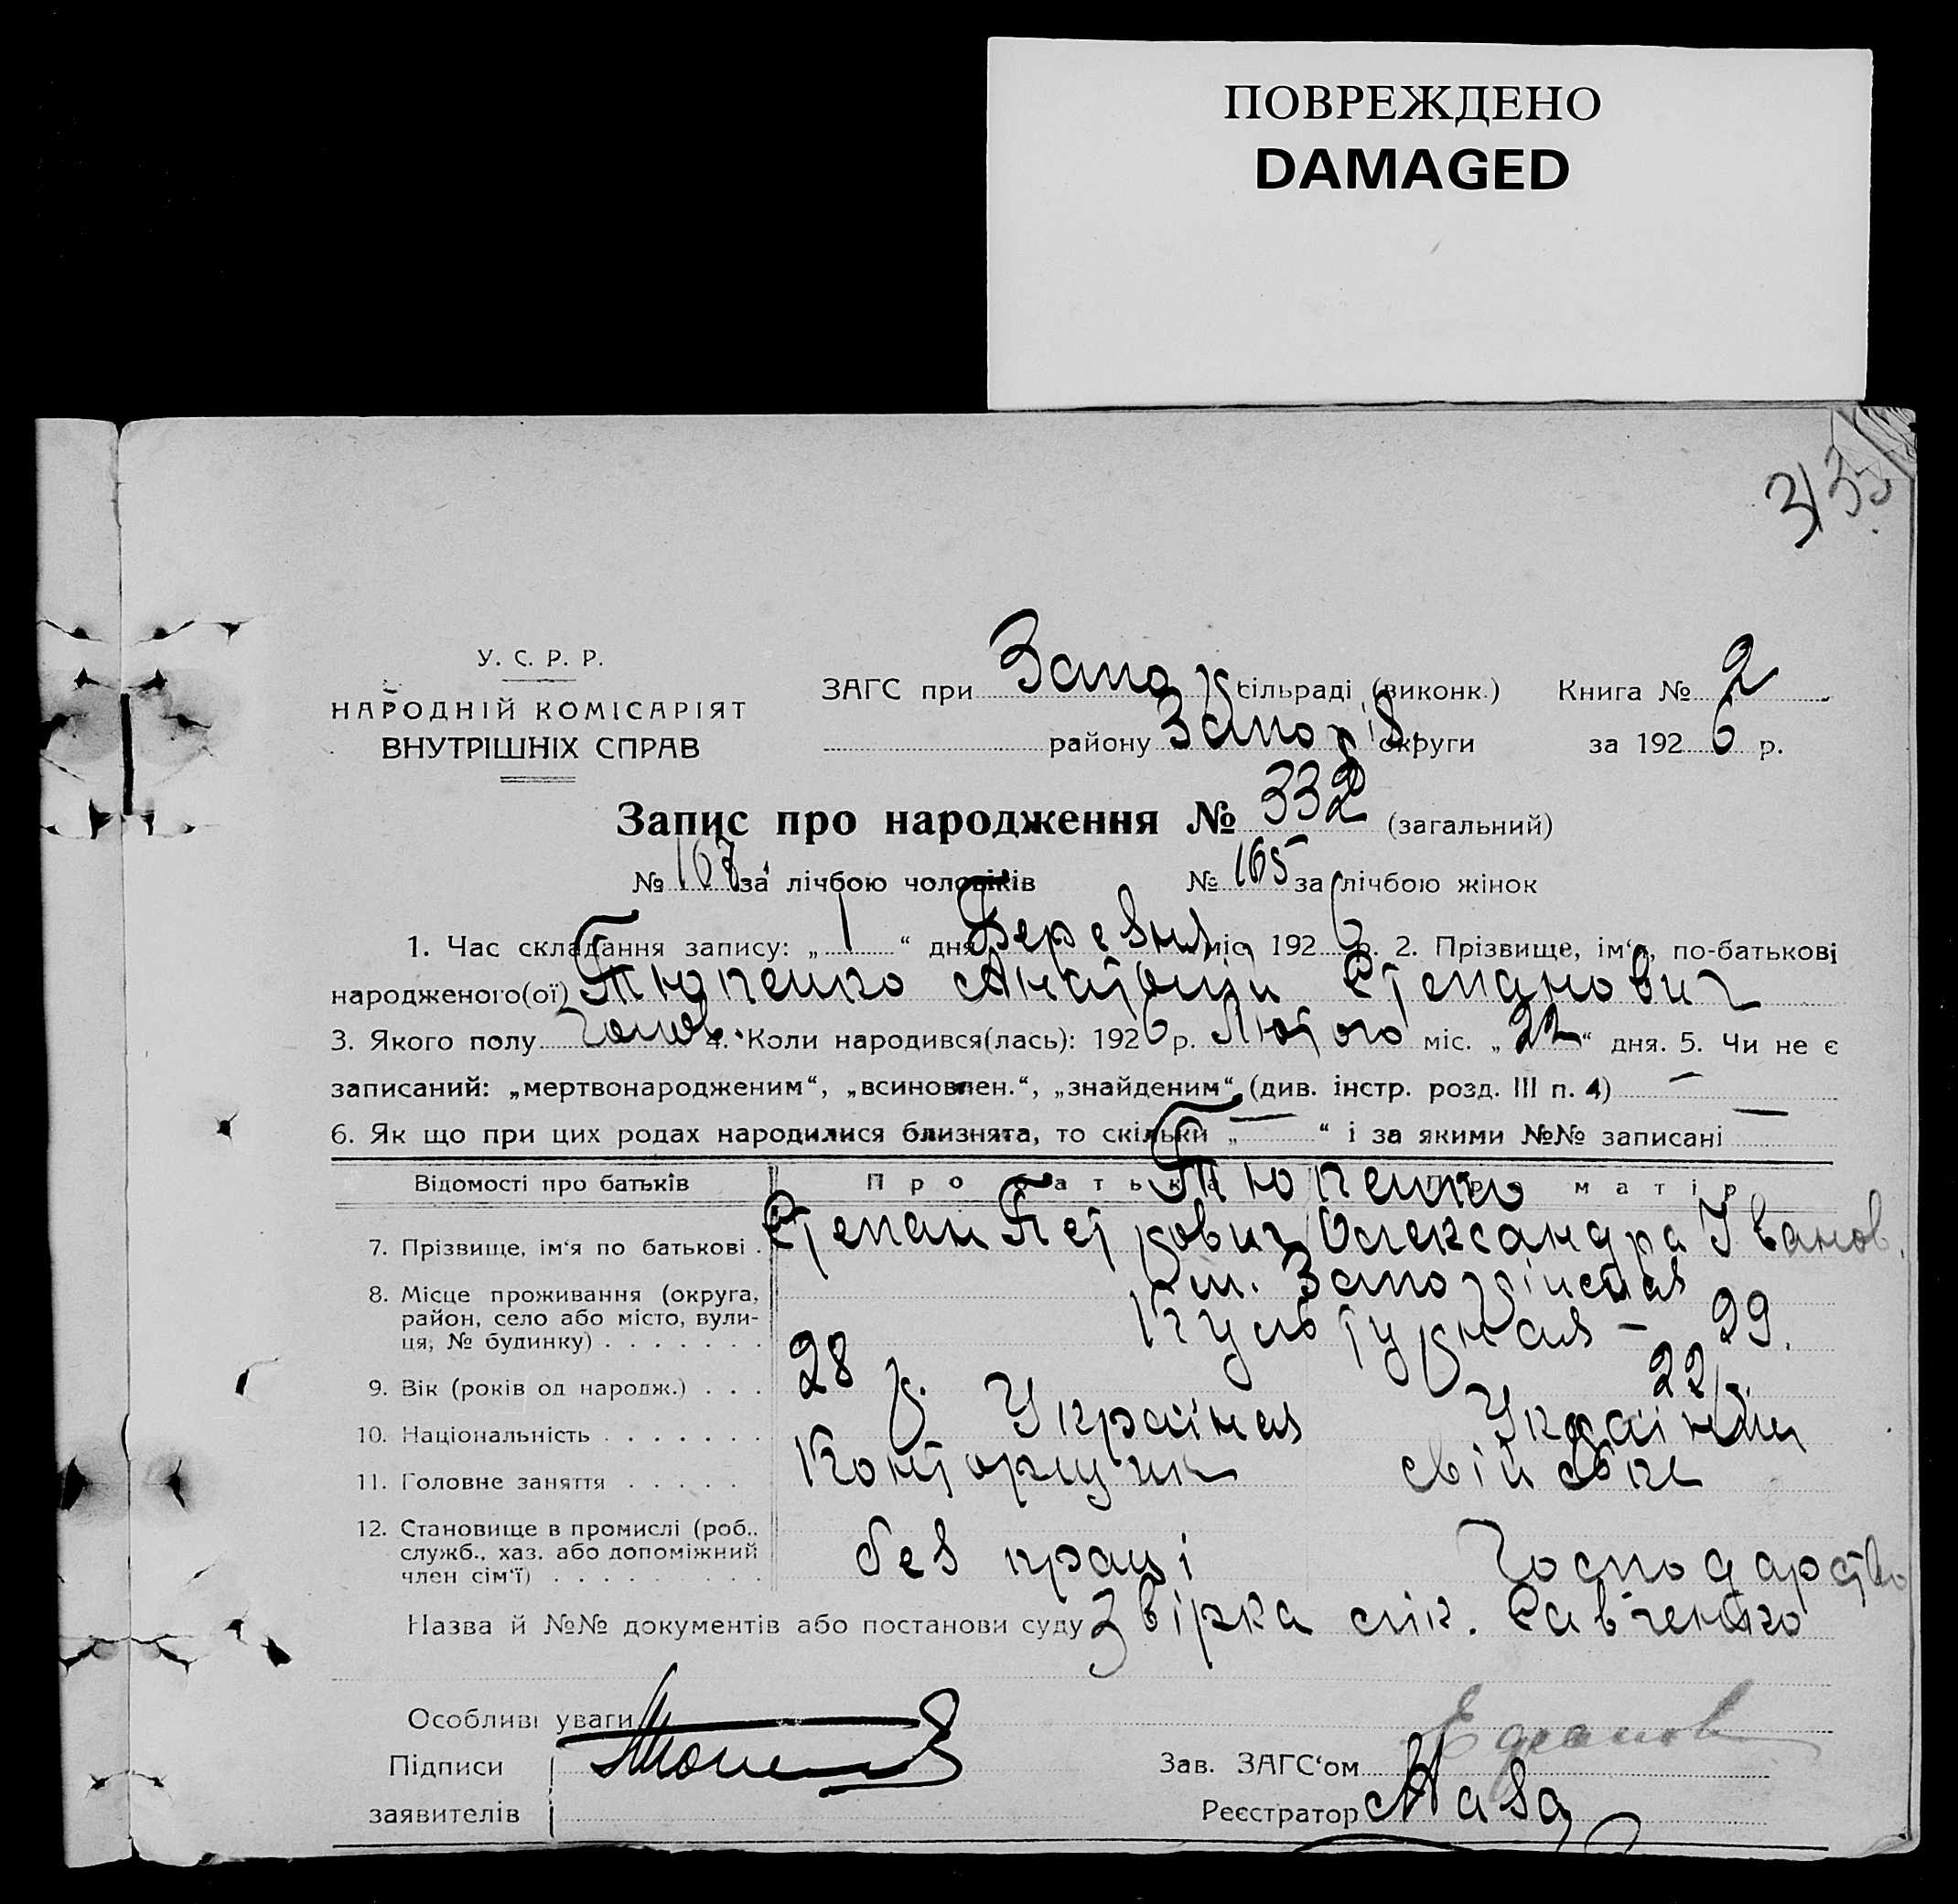 ПОВРЕЖДЕНО
DAMAGED
3/33
У. С. Р. Р.
НАРОДНІЙ КОМІСАРІЯТ
ВНУТРІШНІХ СПРАВ
ЗАГС при Запор сільраді (виконк.) Книга № 2
району Запоріз округи за 1926 р.
Запис про народження № 332 (загальний)
№ 167 за лічбою чоловіків № 165 за лічбою жінок
1. Час складання запису: „1“ дня Березня міс. 1926 р. 2. Прізвище, ім‘я, по-батькові
народженого(ої) Тюпенко Анатолій Степанович
3. Якого полу Чолов. 4. Коли народився(лась): 1926 р. Лютого міс. „22“ дня. 5. Чи не є
записаний: „мертвонародженим“, „всиновлен.“, „знайденим“ (див. інстр. розд. III п. 4) —
6. Як що при цих родах народилися близнята, то скільки „—“ і за якими №№ записані —
Відомості про батьків Про батька Про матір
Тюпенко
7. Прізвище, ім‘я по батькові . Степан Петрович Олександра Іванов.
8. Місце проживання (округа, м. Запоріжжя
район, село або місто, вули-
ця, № будинку) . . . . . . . Культурная — 29.
9. Вік (років од народж.) . . . 28 р. 22 р.
10. Національність . . . . . . . Українец Українка
11. Головне заняття . . . . . Конторщик свійське
12. Становище в промислі (роб.,
служб., хаз. або допоміжний без праці Господарство
член сім‘ї) . . . . . . . . .
Назва й №№ документів або постанови суду Звірка лік. Савченко
Особливі уваги
Підписи
заявителів
Зав. ЗАГС‘ом
Реєстратор